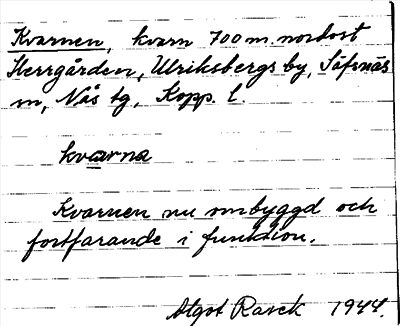 Kvarnen, kvarn 700 m. nordost
Herrgården, Ulriksbergs by, Säfsnäs
sn, Nås tg, Kopp. l.
kvarna
Kvarnen nu ombyggd och
fortfarande i funktion.
Algot Rasck 1944.